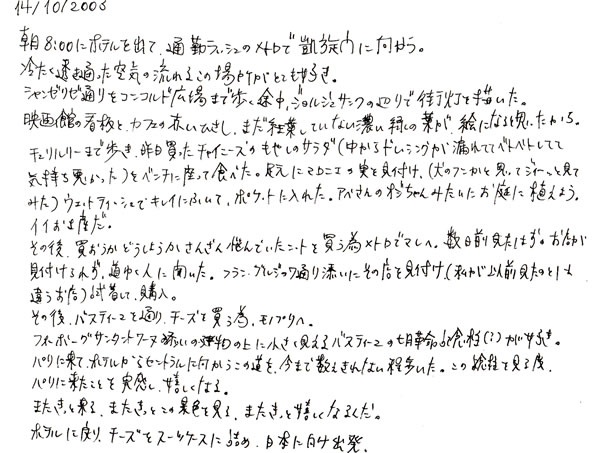 14/10/2003
朝8:00にホテルを出て、通勤ラッシュのメトロで凱旋門に向かう。
冷たく透き通った空気の流れるこの場所がとても好き。
シャンゼリゼ通りをコンコルド広場まで歩く途中、ジョルジュサンクの辺りで街灯を描いた。
映画館の看板と、カフェの赤いひさし、まだ紅葉していない濃い緑の葉が、絵になると思ったから。
チュリルリーまで歩き、昨日買ったチャイニーズのもやしのサラダ(中からドレッシングが漏れててベトベトしてて
気持ち悪かった)をベンチに座って食べた。足元にマロニエの実を見付け、(犬のフンかと思ってジーっと見て
みた)ウェットティッシュでキレイにふいて、ポケットに入れた。アベさんのおじちゃんみたいにお庭に植えよう。
イイお土産だ。
その後、買おうかどうしようかさんざん悩んでいたニットを買う為メトロでマレへ。数日前見たはずのお店が
見付けられず、道ゆく人に聞いた。フラン・ブルジョワ通り添いにその店を見付け(私が以前見たのとは
違うお店)試着して、購入。
その後、バスティーユを通り、チーズを買う為、モノプリへ。
フォーボーグサンタントワーヌ添いの建物の上に小さく見えるバスティーユの七月革命記念柱(?)が好き。
パリに来て、ホテルからセントラルに向かうこの道を、今まで数えきれない程歩いた。この記念柱を見る度、
パリに来たことを実感し、嬉しくなる。
またきっと来る、またきっとこの景色を見る、またきっと嬉しくなるんだ。
ホテルに戻り、チーズをスーツケースに詰め、日本に向け出発。